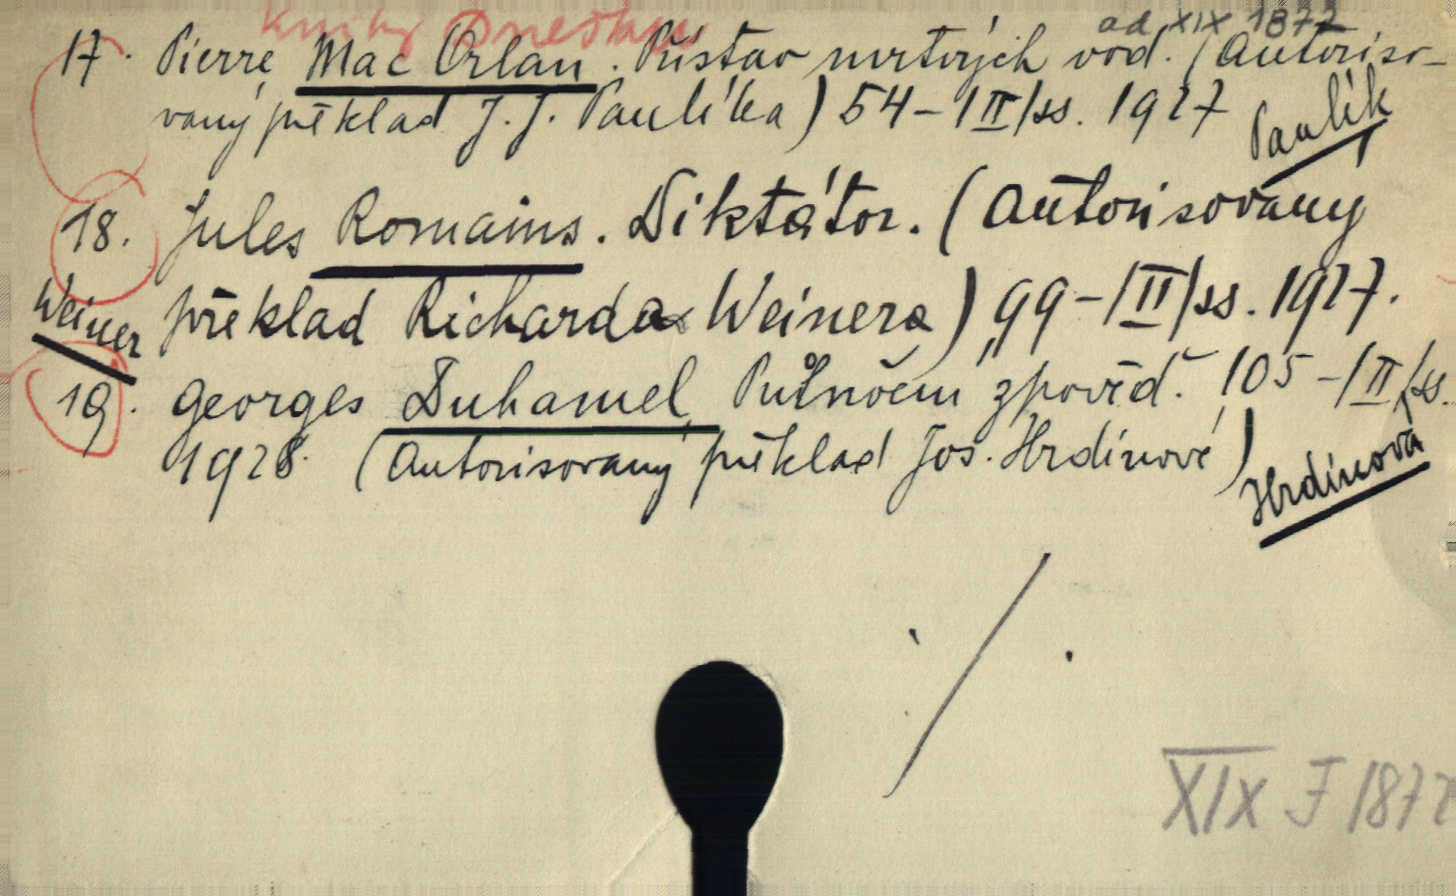 Knihy Dneška
ad XIX 1877
17. Pierre Mac Orlan. Přístav mrtvých vod. (Autoriso-
vaný překlad J. J. Paulíka) 54-1II/ss. 1927
Paulík
18. Jules Romains. Diktátor. (Autorisovaný
překlad Richarda Weinera) 99-1II/ss. 1927.
Weiner
19. Georges Duhamel, Půlnoční zpověď. 105-1II/ss.
1928. (Autorisovaný překlad Jos. Hrdinové)
Hrdinová
XIX J 187